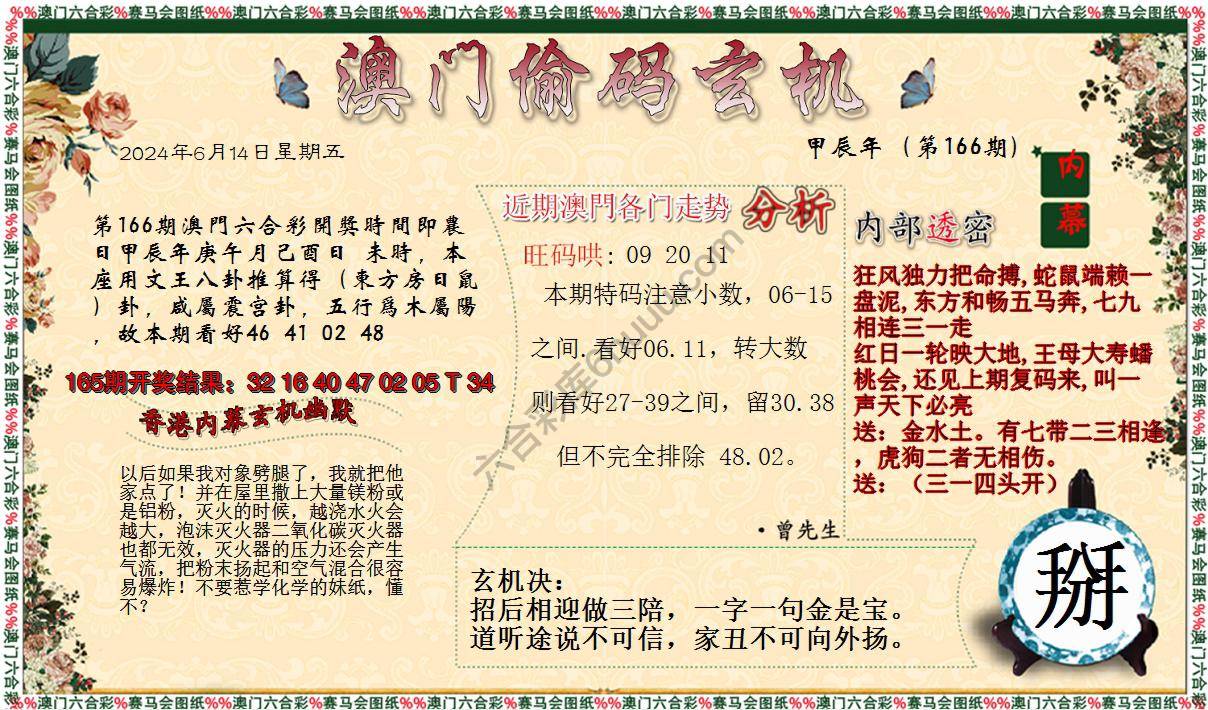 %%澳门六合彩%赛马会图纸%%澳门六合彩%赛马会图纸%%澳门六合彩%赛马会图纸%%澳门六合彩%赛马会图纸%%澳门六合彩%赛马会图纸%%澳门六合彩%赛马会图纸%%澳门六合彩%赛马会图纸
澳门偷码玄机
2024年6月14日星期五
甲辰年（第166期）
内幕
第166期澳門六合彩開獎時間即農
日甲辰年庚午月己酉日 未時，本
座用文王八卦推算得（東方房日鼠
）卦，咸屬震宫卦，五行爲木屬陽
，故本期看好46 41 02 48
165期开奖结果：32 16 40 47 02 05 T 34
香港内幕玄机幽默
以后如果我对象劈腿了，我就把他
家点了！并在屋里撒上大量镁粉或
是铝粉，灭火的时候，越浇水火会
越大，泡沫灭火器二氧化碳灭火器
也都无效，灭火器的压力还会产生
气流，把粉末扬起和空气混合很容
易爆炸！不要惹学化学的妹纸，懂
不？
近期澳門各门走势 分析
旺码哄: 09 20 11
本期特码注意小数，06-15
之间.看好06.11，转大数
则看好27-39之间，留30.38
但不完全排除 48.02。
·曾先生
内部透密
狂风独力把命搏,蛇鼠端赖一
盘泥,东方和畅五马奔,七九
相连三一走
红日一轮映大地,王母大寿蟠
桃会,还见上期复码来,叫一
声天下必亮
送：金水土。有七带二三相逢
，虎狗二者无相伤。
送：（三一四头开）
玄机决：
招后相迎做三陪，一字一句金是宝。
道听途说不可信，家丑不可向外扬。
掰
%%澳门六合彩%赛马会图纸%%澳门六合彩%赛马会图纸%%澳门六合彩%赛马会图纸%%澳门六合彩%赛马会图纸%%澳门六合彩%赛马会图纸%%澳门六合彩%赛马会图纸%%澳门六合彩%赛马会图纸